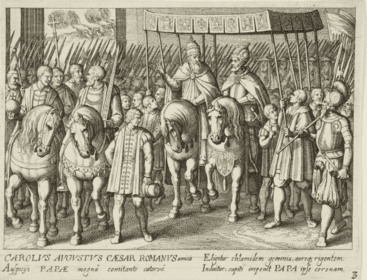 CAROLVS AVGVSTVS CÆSAR ROMANVS amicis
Auspicijs PAPÆ magna comitante caterva
Eligitur chlamidem gemmis, auroq. rigentem
Induitur; capiti imponit PAPA ipse coronam.
3